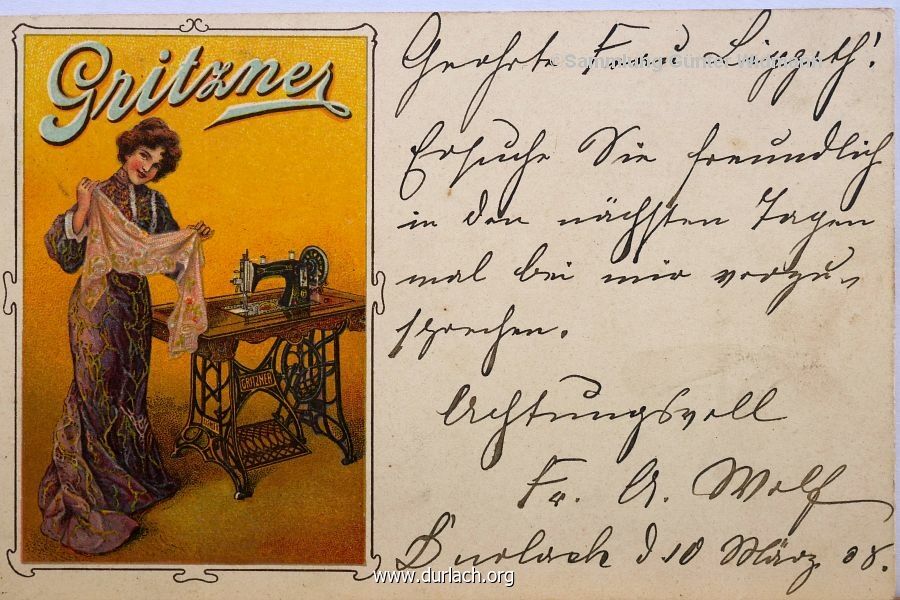 Gritzner
GRITZNER
Geehrte Frau Lippoth!
© Sammlung Günter Widmann
Ersuche Sie freundlich
in den nächsten Tagen
mal bei mir vorzu-
sprechen.
Achtungsvoll
Fr. A. Wolf
Durlach d 10 März 08.
www.durlach.org